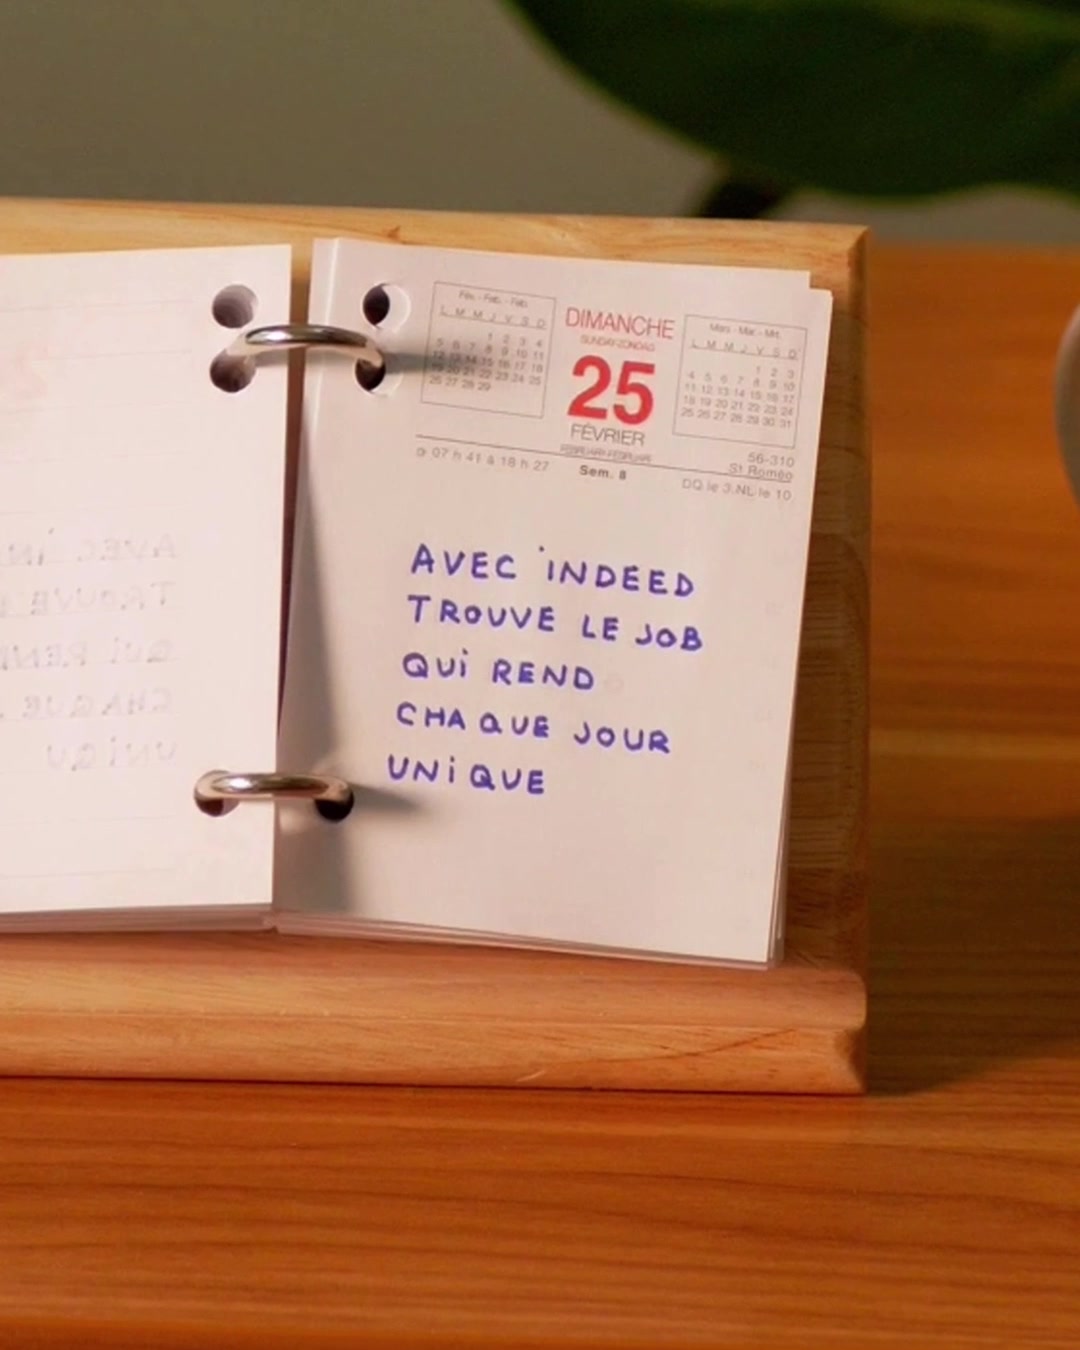 Fév. - Feb. - Feb.
L M M J V S D
1 2 3 4
5 6 7 8 9 10 11
12 13 14 15 16 17 18
19 20 21 22 23 24 25
26 27 28 29
DIMANCHE
SUNDAY-ZONDAG
25
FÉVRIER
Mars - Mar. - Mrt.
L M M J V S D
1 2 3
4 5 6 7 8 9 10
11 12 13 14 15 16 17
18 19 20 21 22 23 24
25 26 27 28 29 30 31
56-310
St Roméo
07 h 41 à 18 h 27
Sem. 8
DQ le 3.NL le 10
AVEC INDEED
TROUVE LE JOB
QUi REND
CHAQUE JOUR
UNiQUE